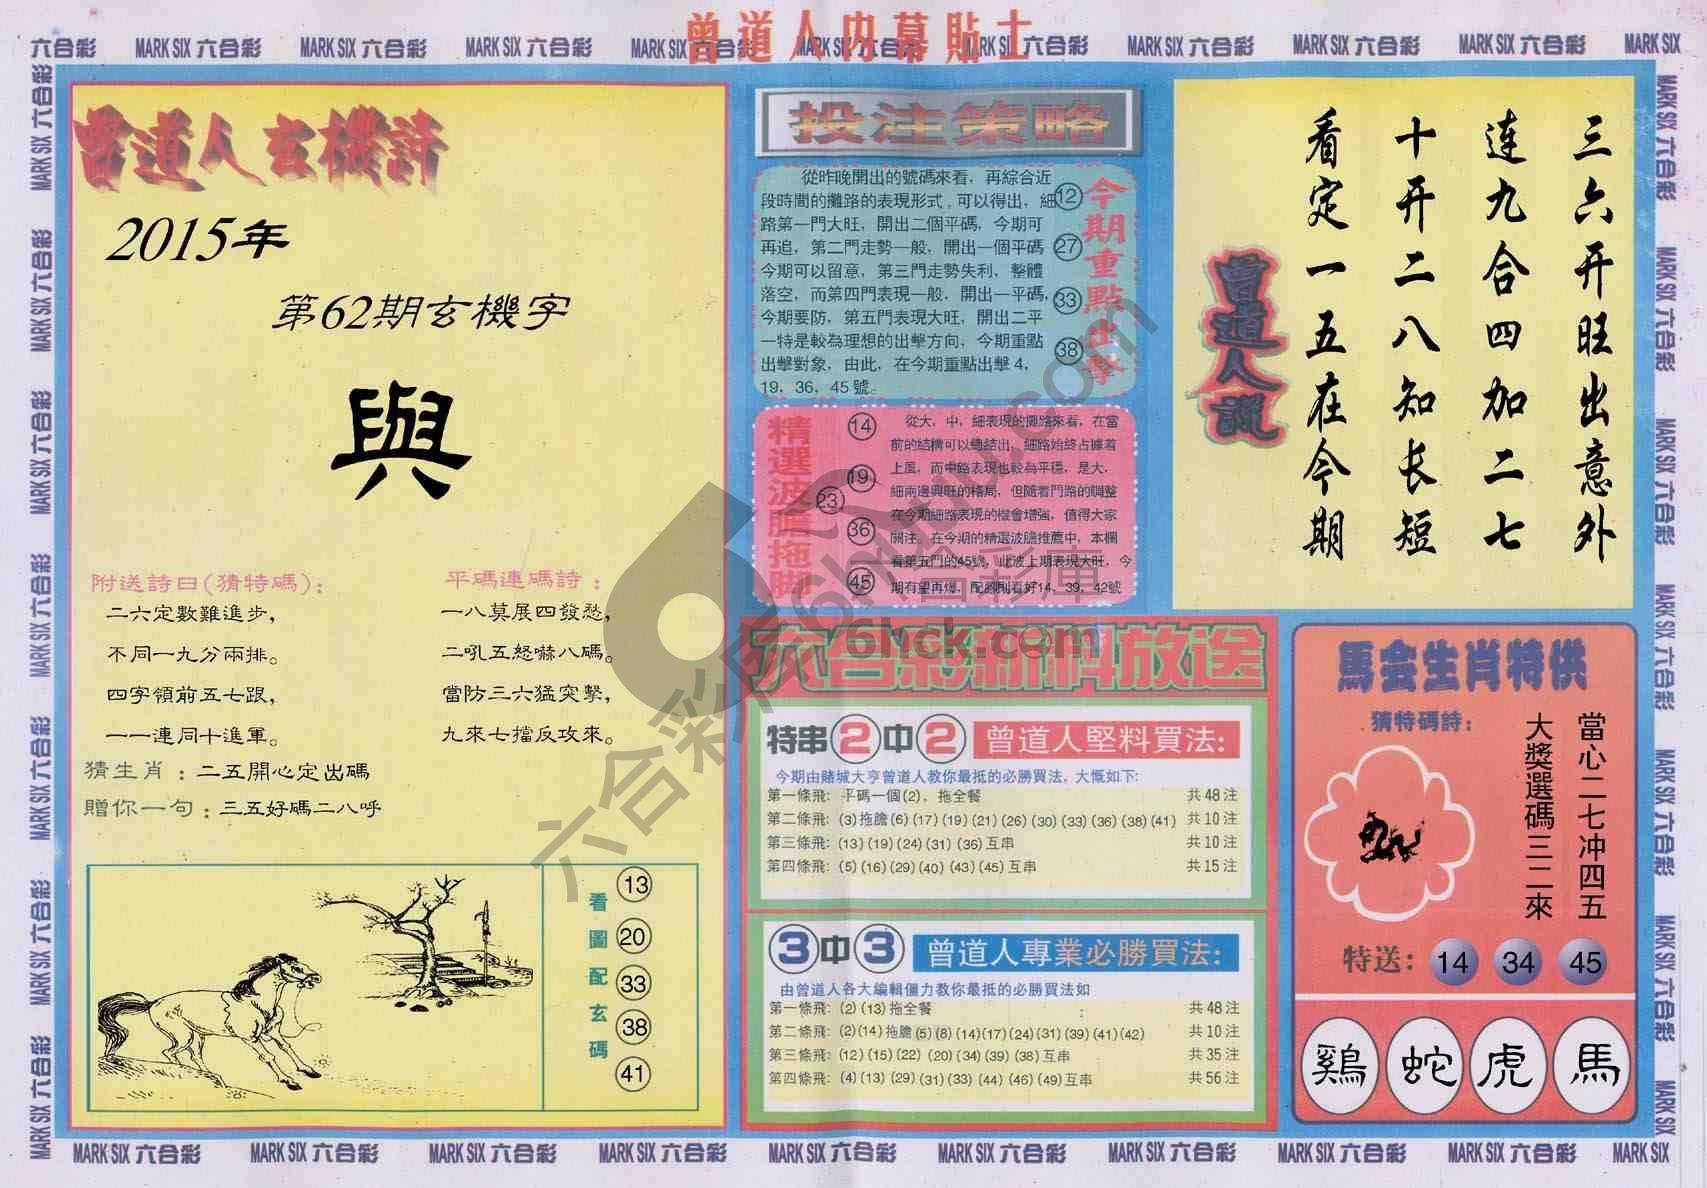 曾道人内幕貼士
六合彩 MARK SIX 六合彩 MARK SIX 六合彩 MARK SIX 六合彩 MARK SIX 六合彩 MARK SIX 六合彩 MARK SIX 六合彩 MARK SIX 六合彩 MARK SIX 六合彩 MARK SIX 六合彩 MARK SIX
曾道人玄機詩
2015年
第62期玄機字
與
附送詩曰(猜特碼):
二六定數難進步,
不同一九分兩排。
四字領前五七跟,
一一連同十進軍。
平碼連碼詩:
一八莫展四發愁,
二吼五怒嚇八碼。
當防三六猛突擊,
九來七擋反攻來。
猜生肖:二五開心定出碼
贈你一句:三五好碼二八呼
看圖配玄碼
13
20
33
38
41
投注策略
從昨晚開出的號碼來看，再綜合近
段時間的攤路的表現形式，可以得出，細
路第一門大旺，開出二個平碼，今期可
再追，第二門走勢一般，開出一個平碼
今期可以留意，第三門走勢失利，整體
落空，而第四門表現一般，開出一平碼，
今期要防，第五門表現大旺，開出二平
一特是較為理想的出擊方向，今期重點
出擊對象，由此，在今期重點出擊 4，
19，36，45 號。
今期重點出擊
12
27
33
38
精選波膽拖脚
14
19
23
36
45
從大，中，細表現的攤路來看，在當
前的結構可以總結出，細路始終占據着
上風，而中路表現也較為平穩，是大，
細兩邊興旺的格局，但隨着門路的調整
在今期細路表現的機會增強，值得大家
關注。在今期的精選波膽推薦中，本欄
看第五門的45號，此波上期表現大旺，今
期有望再爆，配腳則看好14，39，42號
六合彩新料放送
特串2中2 曾道人堅料買法:
今期由賭城大亨曾道人教你最抵的必勝買法，大慨如下:
第一條飛: 平碼一個(2)，拖全餐 共 48 注
第二條飛: (3)拖膽(6)(17)(19)(21)(26)(30)(33)(36)(38)(41) 共 10 注
第三條飛: (13)(19)(24)(31)(36)互串 共 10 注
第四條飛: (5)(16)(29)(40)(43)(45)互串 共 15 注
3中3 曾道人專業必勝買法:
由曾道人各大編輯僵力教你最抵的必勝買法如
第一條飛: (2)(13)拖全餐 共 48 注
第二條飛: (2)(14)拖膽(5)(8)(14)(17)(24)(31)(39)(41)(42) 共 10 注
第三條飛: (12)(15)(22)(20)(34)(39)(38)互串 共 35 注
第四條飛: (4)(13)(29)(31)(33)(44)(46)(49)互串 共 56 注
三六开旺出意外
连九合四加二七
十开二八知长短
看定一五在今期
曾道人說
馬会生肖特供
猜特碼詩:
當心二七冲四五
大獎選碼三二來
特送: 14 34 45
鷄 蛇 虎 馬
六合彩库 6htu.com
6hck.com
MARK SIX 六合彩 MARK SIX 六合彩 MARK SIX 六合彩 MARK SIX 六合彩 MARK SIX 六合彩 MARK SIX 六合彩 MARK SIX 六合彩 MARK SIX 六合彩 MARK SIX 六合彩 MARK SIX